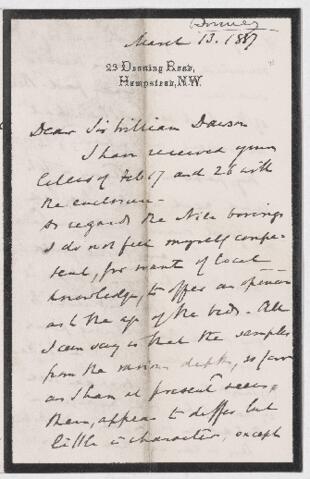 Bonney
March 13. 1887
23 Denning Road,
Hampstead, N.W.
Dear Sir William Dawson
I have received your
letters of Feb 17 and 26 with
the enclosure -
As regards the Nile borings
I do not feel myself compe-
tent, for want of local
knowledge, to offer an opinion
as to the age of the beds. All
I can say is that the samples
from the various depths, so far
as I have at present seen
them, appear to differ but
little in character, except